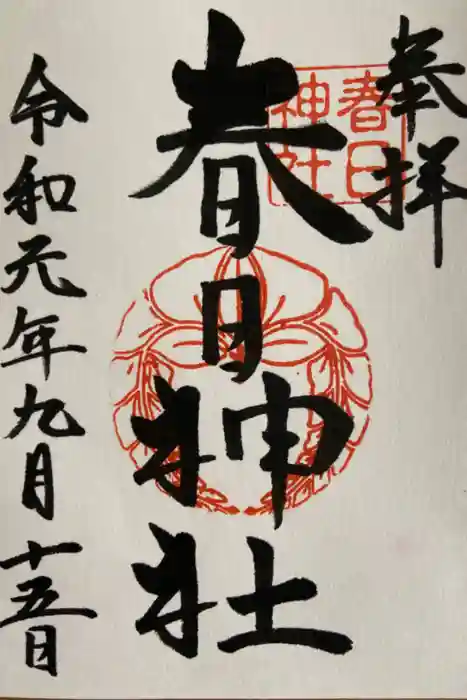 奉拝
春日神社
春日
神社
令和元年九月十五日